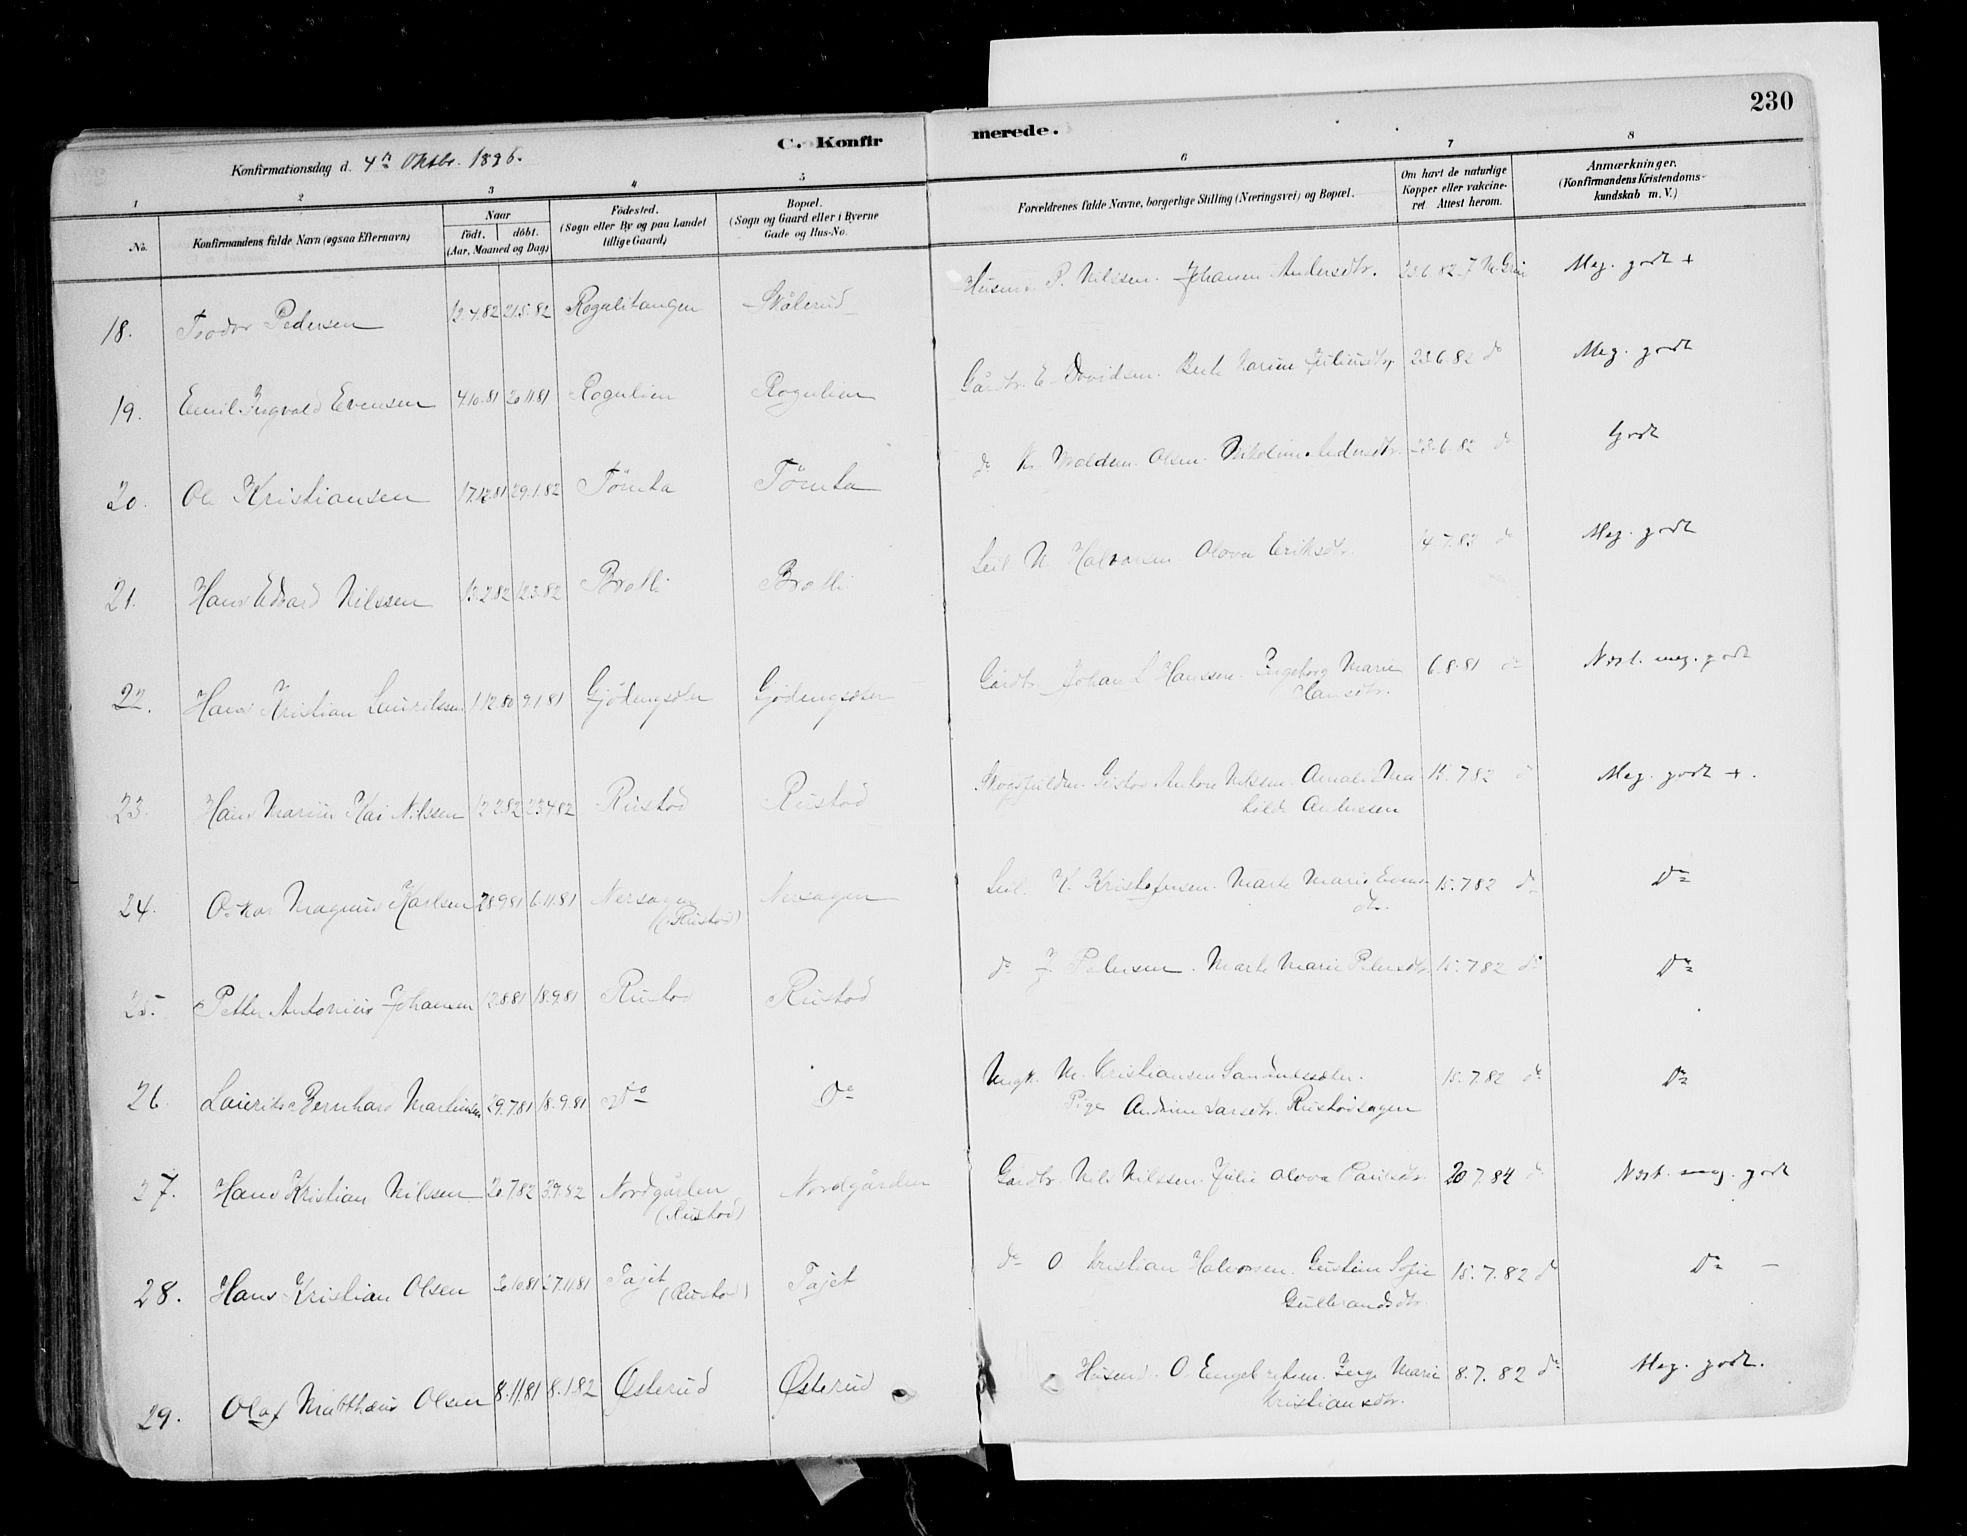 230
C. Konfir merede.
Konfirmationsdag d. 4n Oktbr. 1896.
1 2 3 4 5 6 7 8
No. Konfirmandens fulde Navn (ogsaa Efternavn)
Naar
født. døbt.
(Aar, Maaned og Dag)
Fødested.
(Sogn eller By og paa Landet
tillige Gaard)
Bopæl.
(Sogn og Gaard eller i Byerne
Gade og Hus-No.
Forældrenes fulde Navne, borgerlige Stilling (Næringsvei) og Bopæl.
Om havt de naturlige
Kopper eller vakcine-
ret. Attest herom.
Anmærkninger.
(Konfirmandens Kristendoms-
kundskab m. V.)
18. Teodor Pedersen 12.4.82 21.5.82 Rogulitangen Skålerud Husm. P. Nilssen. Johanne Andersdtr. 23.6.82 Meg. godt +
19. Emil Ingvald Evensen 4.10.81 20.11.81 Rogulien Rogulien Gårdbr. E. Davidsen. 23.6.82 do Meg. godt
20. Ole Kristiansen 17.12.81 29.1.82 Tömta Tömta do Kr. Olsen. Nikoline Andersdtr. 23.6.82 do Godt
21. Hans Edvard Nilssen 13.2.82 12.3.82 Brolli Brolli Leil. N. Halvorsen Olova Eriksdtr. 4.7.83 do Meg. godt
22. Hans Kristian Lauritssen 1.12.80 9.1.81 Gjödingsæter Gjödingsæter Gårdbr. Johan L. Hanssen. Ingeborg Marie 6.8.81 do Næst. meg. godt
Hansdtr.
23. Hans Marius Kai Nilssen 12.2.82 23.4.82 Rustad Rustad Gustav Anton Nilssen. Amalie Ma 15.7.82 do Meg. godt +.
tilde Andersen
24. Oskar Magnus Karlsen 28.9.81 6.11.81 Nersagen Nersagen Leil. K. Kristofersen. Marte Marie 15.7.82 do Do
(Rustad) dtr.
25. Petter Antonius Johansen 12.8.81 18.9.81 Rustad Rustad do J. Petersen. Marte Marie Petersdtr. 15.7.82 do Do
26. Laurits Bernhard Martinsen 29.7.81 18.9.81 Do Do Ungk. M. Kristiansen 15.7.82 do Do
Pige Andrine Larsdtr. Rustadsagen
27. Hans Kristian Nilssen 20.7.82 3.9.82 Nordgården Nordgården Gårdbr. Nils Nilssen. Julie Olova Paulsdtr. 20.7.84 do Næst. meg. godt
(Rustad)
28. Hans Kristian Olsen 20.10.81 27.11.81 Tajet Tajet do O Kristian Halvorsen. Gustine Sofie 15.7.82 do Do -
(Rustad) Gulbrandsdtr.
29. Olaf Matthæus Olsen 8.11.81 8.1.82 Østerud Østerud Husmd. O. Engebretsen. Inge Marie 8.7.82 do Meg. godt.
Kristiansdtr.